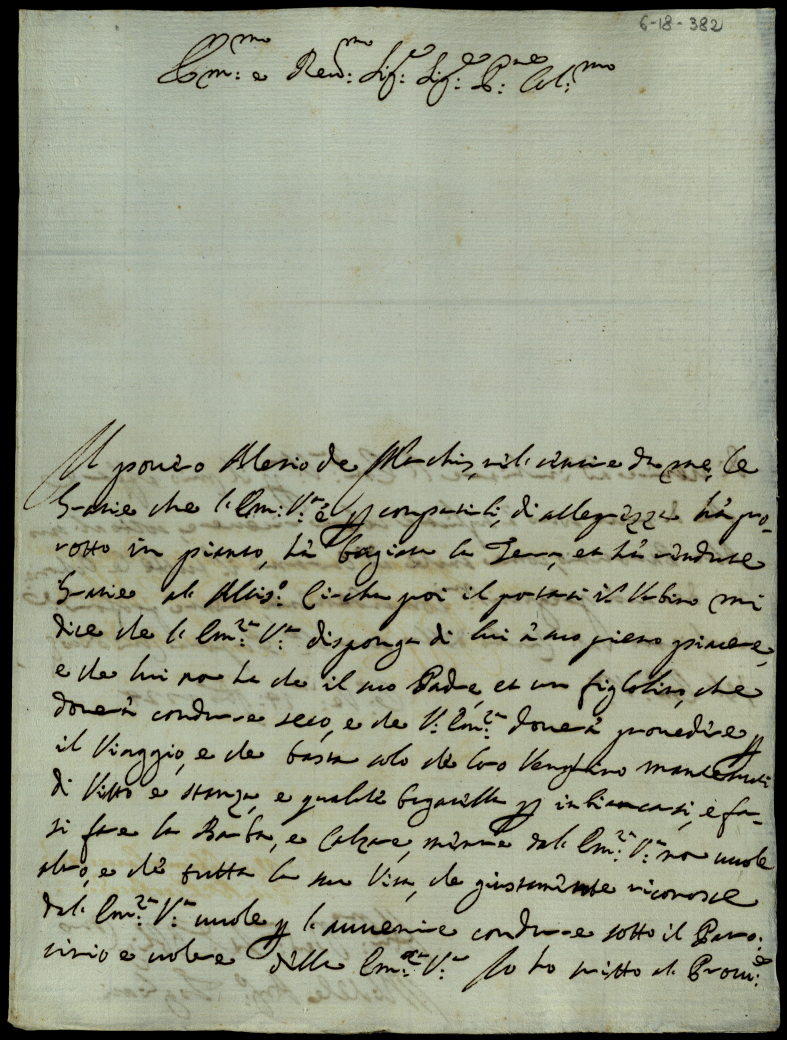 6-18-382
Em:mo e Reu:mo Sig:e Sig:e P:ne Col:mo
Il pouero Alesio de Marchis, nel sentire da me, le
Gratie che l' Em:za V:ra è p compartirli, di allegrezza hà pro-
rotto in pianto, hà bagiata la Terra, et hà rendute
Gratie al Altis:o Circha poi il portarsi il Vrbino mi
dice che l' Em:za V:ra disponga di lui à suo pieno piacere,
e che lui non ha che il suo Padre, et un figliolino, che
douerà condure seco, e che V: Em:za douerà prouedire p
il Viaggio, e che basta solo che loro Venghino mantenuti
di Vitto e stanza, e qualche bagatella p inbiancarsi, e far-
si fare la Barba, e Calzare, mentre dal' Em:za V:ra non uuole
altro, e che tutta la sua Vita, che giustamente riconosce
dal' Em:za V:ra uuole p l' auuenire condure sotto il Patro:
cinio e volere dell' Em:za V:ra Io ho scritto al Prou:e